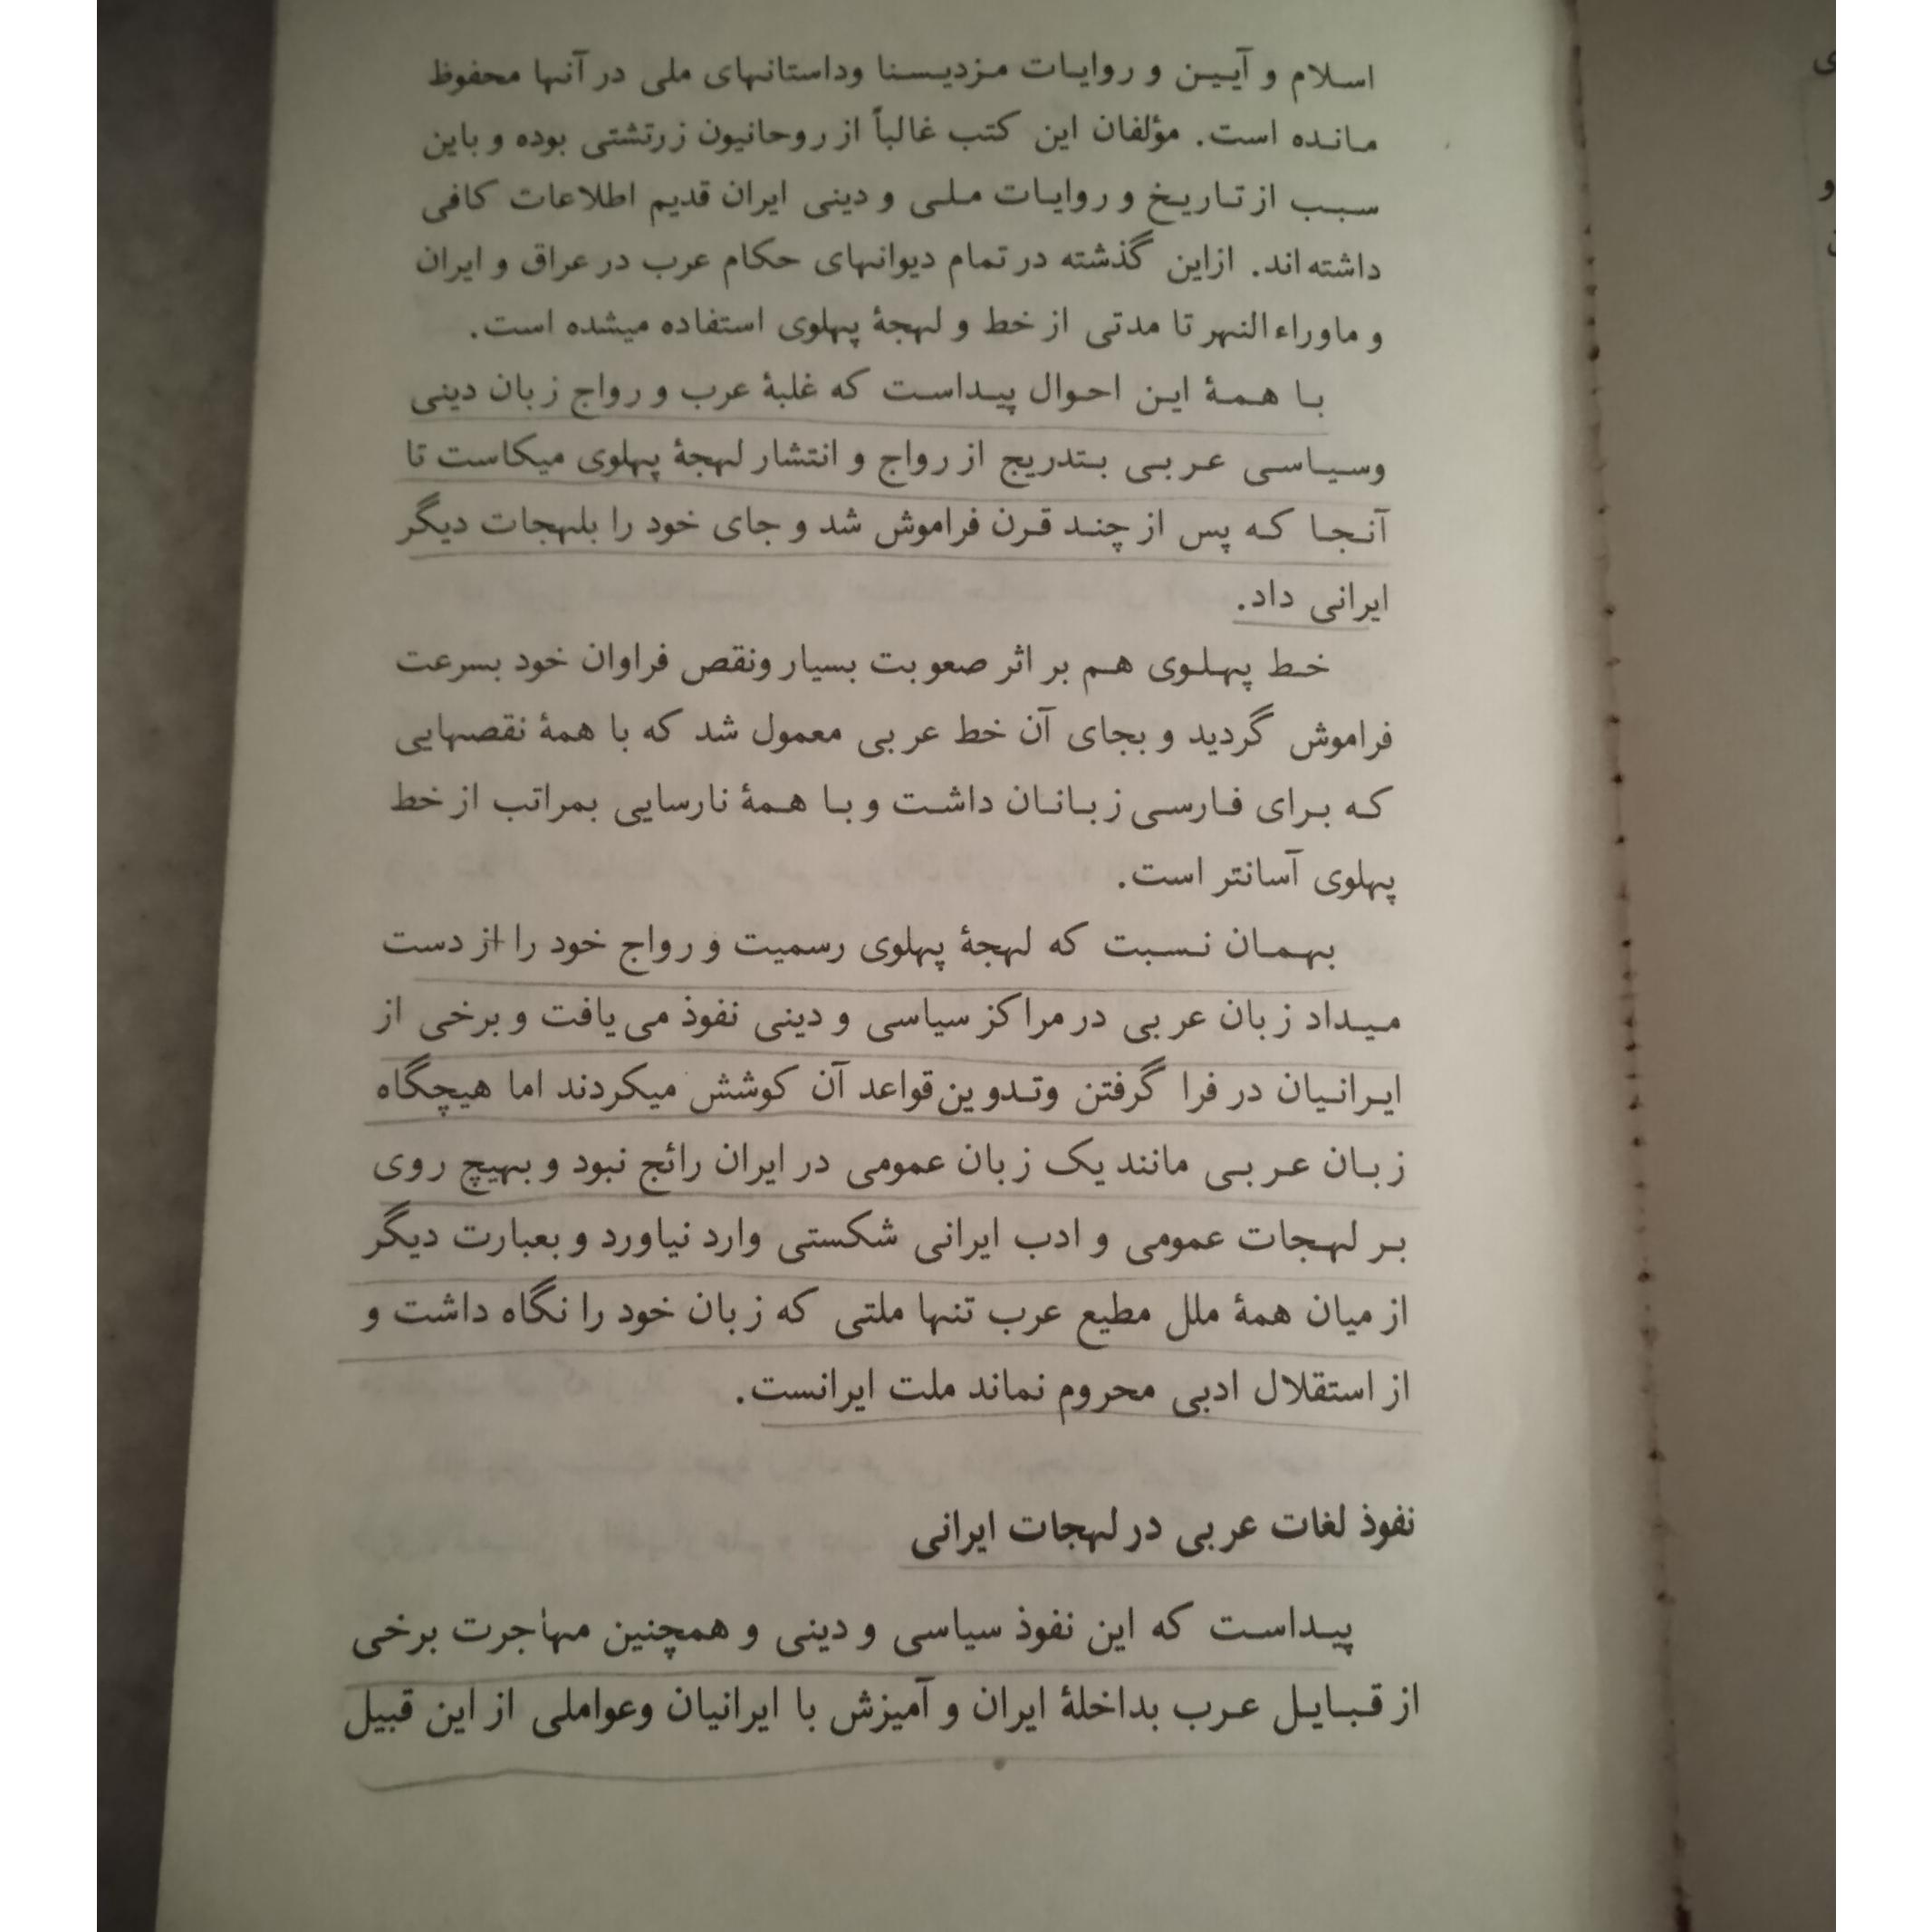 اسلام و آیین و روایات مزدیسنا وداستانهای ملی در آنها محفوظ
مانده است. مؤلفان این کتب غالباً از روحانیون زرتشتی بوده و باین
سبب از تاریخ و روایات ملی و دینی ایران قدیم اطلاعات کافی
داشته‌اند. ازاین گذشته در تمام دیوانهای حکام عرب در عراق و ایران
و ماوراءالنهر تا مدتی از خط و لهجهٔ پهلوی استفاده میشده است.
با همهٔ این احوال پیداست که غلبهٔ عرب و رواج زبان دینی
وسیاسی عربی بتدریج از رواج و انتشار لهجهٔ پهلوی میکاست تا
آنجا که پس از چند قرن فراموش شد و جای خود را بلهجات دیگر
ایرانی داد.
خط پهلوی هم بر اثر صعوبت بسیار ونقص فراوان خود بسرعت
فراموش گردید و بجای آن خط عربی معمول شد که با همهٔ نقصهایی
که برای فارسی زبانان داشت و با همهٔ نارسایی بمراتب از خط
پهلوی آسانتر است.
بهمان نسبت که لهجهٔ پهلوی رسمیت و رواج خود را از دست
میداد زبان عربی در مراکز سیاسی و دینی نفوذ می‌یافت و برخی از
ایرانیان در فرا گرفتن وتدوین قواعد آن کوشش میکردند اما هیچگاه
زبان عربی مانند یک زبان عمومی در ایران رائج نبود و بهیچ روی
بر لهجات عمومی و ادب ایرانی شکستی وارد نیاورد و بعبارت دیگر
از میان همهٔ ملل مطیع عرب تنها ملتی که زبان خود را نگاه داشت و
از استقلال ادبی محروم نماند ملت ایرانست.
نفوذ لغات عربی در لهجات ایرانی
پیداست که این نفوذ سیاسی و دینی و همچنین مهاجرت برخی
از قبایل عرب بداخلهٔ ایران و آمیزش با ایرانیان وعواملی از این قبیل